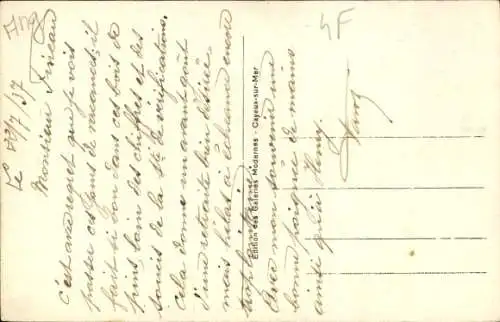 Ang
4F
Le 23/7/37
Monsieur Fineau
c'est avec regret que je vois
passer ces jours de vacances, il
fait si bon dans ces bois de
pins, loin des chiffres et des
soucis de la Sté de vérifications.
cela donne un avant goût
d'une retraite bien désirée
mais hélas à échéance encore
trop lointaine.
Avec mon souvenir une
bonne poignée de mains
ainsi qu'à Henry.
Edition des Galeries Modernes - Cayeux-sur-Mer